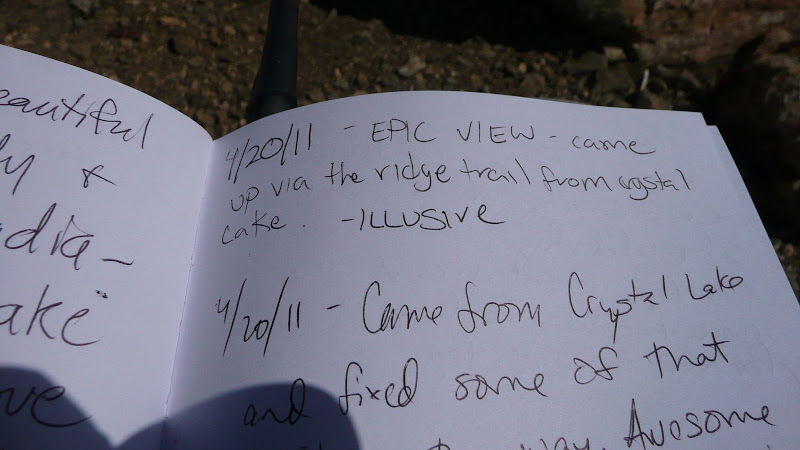 eautiful
ly &
dia-
ake"
ve
4/20/11 - EPIC VIEW - came
up via the ridge trail from crystal
cake. -ILLUSIVE
4/20/11 - Came from Crystal Lake
and fixed some of that
way. Awesome